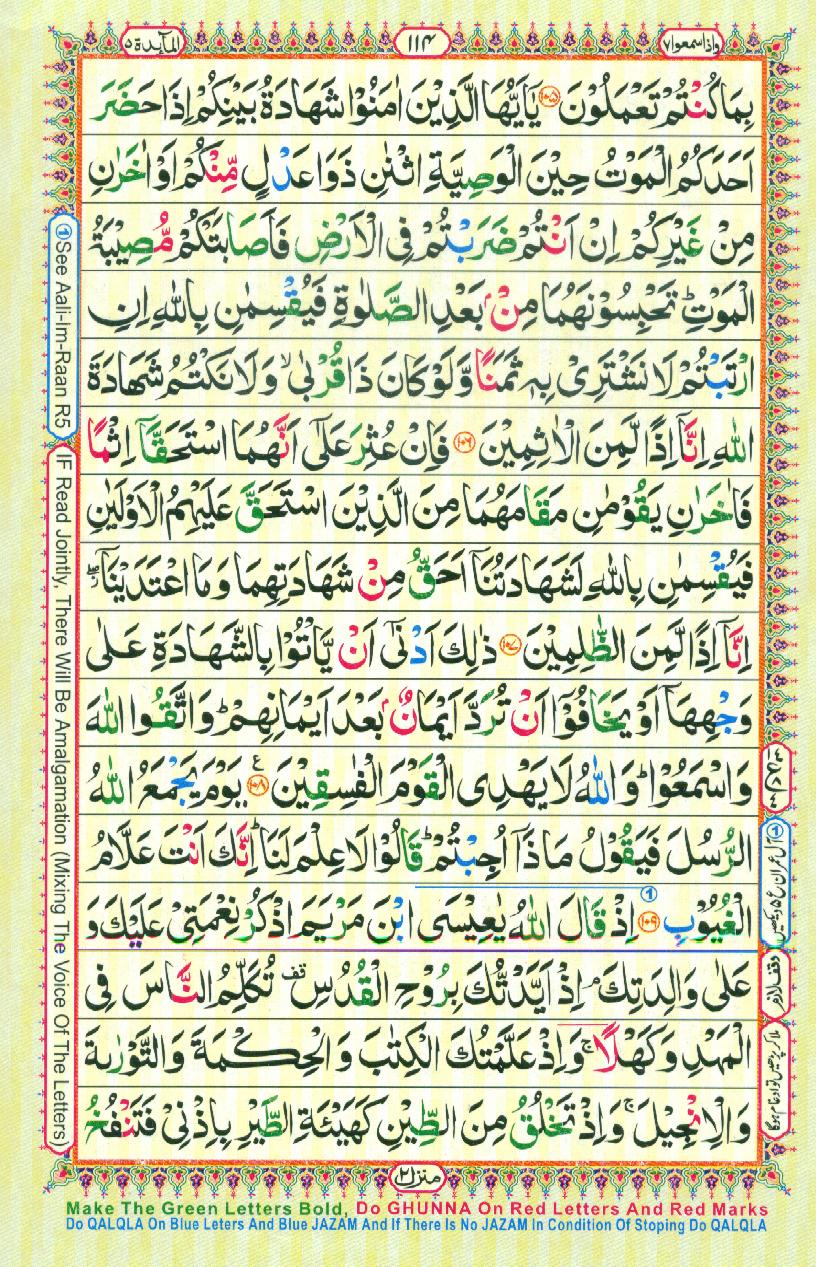 واذاسمعوا۷
۱۱۴
المآىِٕدة ۵
بِمَا كُنْتُمْ تَعْمَلُوْنَ ﴿۱۰۵﴾ يٰۤاَيُّهَا الَّذِيْنَ اٰمَنُوْا شَهَادَةُ بَيْنِكُمْ اِذَا حَضَرَ
اَحَدَكُمُ الْمَوْتُ حِيْنَ الْوَصِيَّةِ اثْنٰنِ ذَوَا عَدْلٍ مِّنْكُمْ اَوْ اٰخَرٰنِ
مِنْ غَيْرِكُمْ اِنْ اَنْتُمْ ضَرَبْتُمْ فِى الْاَرْضِ فَاَصَابَتْكُمْ مُّصِيْبَةُ
الْمَوْتِ ؕ تَحْبِسُوْنَهُمَا مِنْۢ بَعْدِ الصَّلٰوةِ فَيُقْسِمٰنِ بِاللّٰهِ اِنِ
ارْتَبْتُمْ لَا نَشْتَرِىْ بِهٖ ثَمَنًا وَّلَوْ كَانَ ذَا قُرْبٰى ۙ وَلَا نَكْتُمُ شَهَادَةَ
اللّٰهِ اِنَّاۤ اِذًا لَّمِنَ الْاٰثِمِيْنَ ﴿۱۰۶﴾ فَاِنْ عُثِرَ عَلٰٓى اَنَّهُمَا اسْتَحَقَّاۤ اِثْمًا
فَاٰخَرٰنِ يَقُوْمٰنِ مَقَامَهُمَا مِنَ الَّذِيْنَ اسْتَحَقَّ عَلَيْهِمُ الْاَوْلَيٰنِ
فَيُقْسِمٰنِ بِاللّٰهِ لَشَهَادَتُنَاۤ اَحَقُّ مِنْ شَهَادَتِهِمَا وَمَا اعْتَدَيْنَاۤ ۖ
اِنَّاۤ اِذًا لَّمِنَ الظّٰلِمِيْنَ ﴿۱۰۷﴾ ذٰلِكَ اَدْنٰٓى اَنْ يَّاْتُوْا بِالشَّهَادَةِ عَلٰى
وَجْهِهَاۤ اَوْ يَخَافُوْۤا اَنْ تُرَدَّ اَيْمَانٌۢ بَعْدَ اَيْمَانِهِمْ ؕ وَاتَّقُوا اللّٰهَ
وَاسْمَعُوْا ؕ وَاللّٰهُ لَا يَهْدِى الْقَوْمَ الْفٰسِقِيْنَ ﴿۱۰۸﴾ ع يَوْمَ يَجْمَعُ اللّٰهُ
الرُّسُلَ فَيَقُوْلُ مَاذَاۤ اُجِبْتُمْ ؕ قَالُوْا لَا عِلْمَ لَنَا ؕ اِنَّكَ اَنْتَ عَلَّامُ
الْغُيُوْبِ ﴿۱۰۹﴾ ① اِذْ قَالَ اللّٰهُ يٰعِيْسَى ابْنَ مَرْيَمَ اذْكُرْ نِعْمَتِىْ عَلَيْكَ وَ
عَلٰى وَالِدَتِكَ ۘ اِذْ اَيَّدْتُّكَ بِرُوْحِ الْقُدُسِ قف تُكَلِّمُ النَّاسَ فِى
الْمَهْدِ وَكَهْلًا ۚ وَاِذْ عَلَّمْتُكَ الْكِتٰبَ وَالْحِكْمَةَ وَالتَّوْرٰىةَ
وَالْاِنْجِيْلَ ۚ وَاِذْ تَخْلُقُ مِنَ الطِّيْنِ كَهَيْئَةِ الطَّيْرِ بِاِذْنِىْ فَتَنْفُخُ
① آل عمران ع ۵ دیکھیں
وقف لازم
ملا کر پڑھیں تو ادغام ہوگا
①See Aali-Im-Raan R5
IF Read Jointly, There Will Be Amalgamation (Mixing The Voice Of The Letters)
منزل ۲
Make The Green Letters Bold, Do GHUNNA On Red Letters And Red Marks
Do QALQLA On Blue Leters And Blue JAZAM And If There Is No JAZAM In Condition Of Stoping Do QALQLA